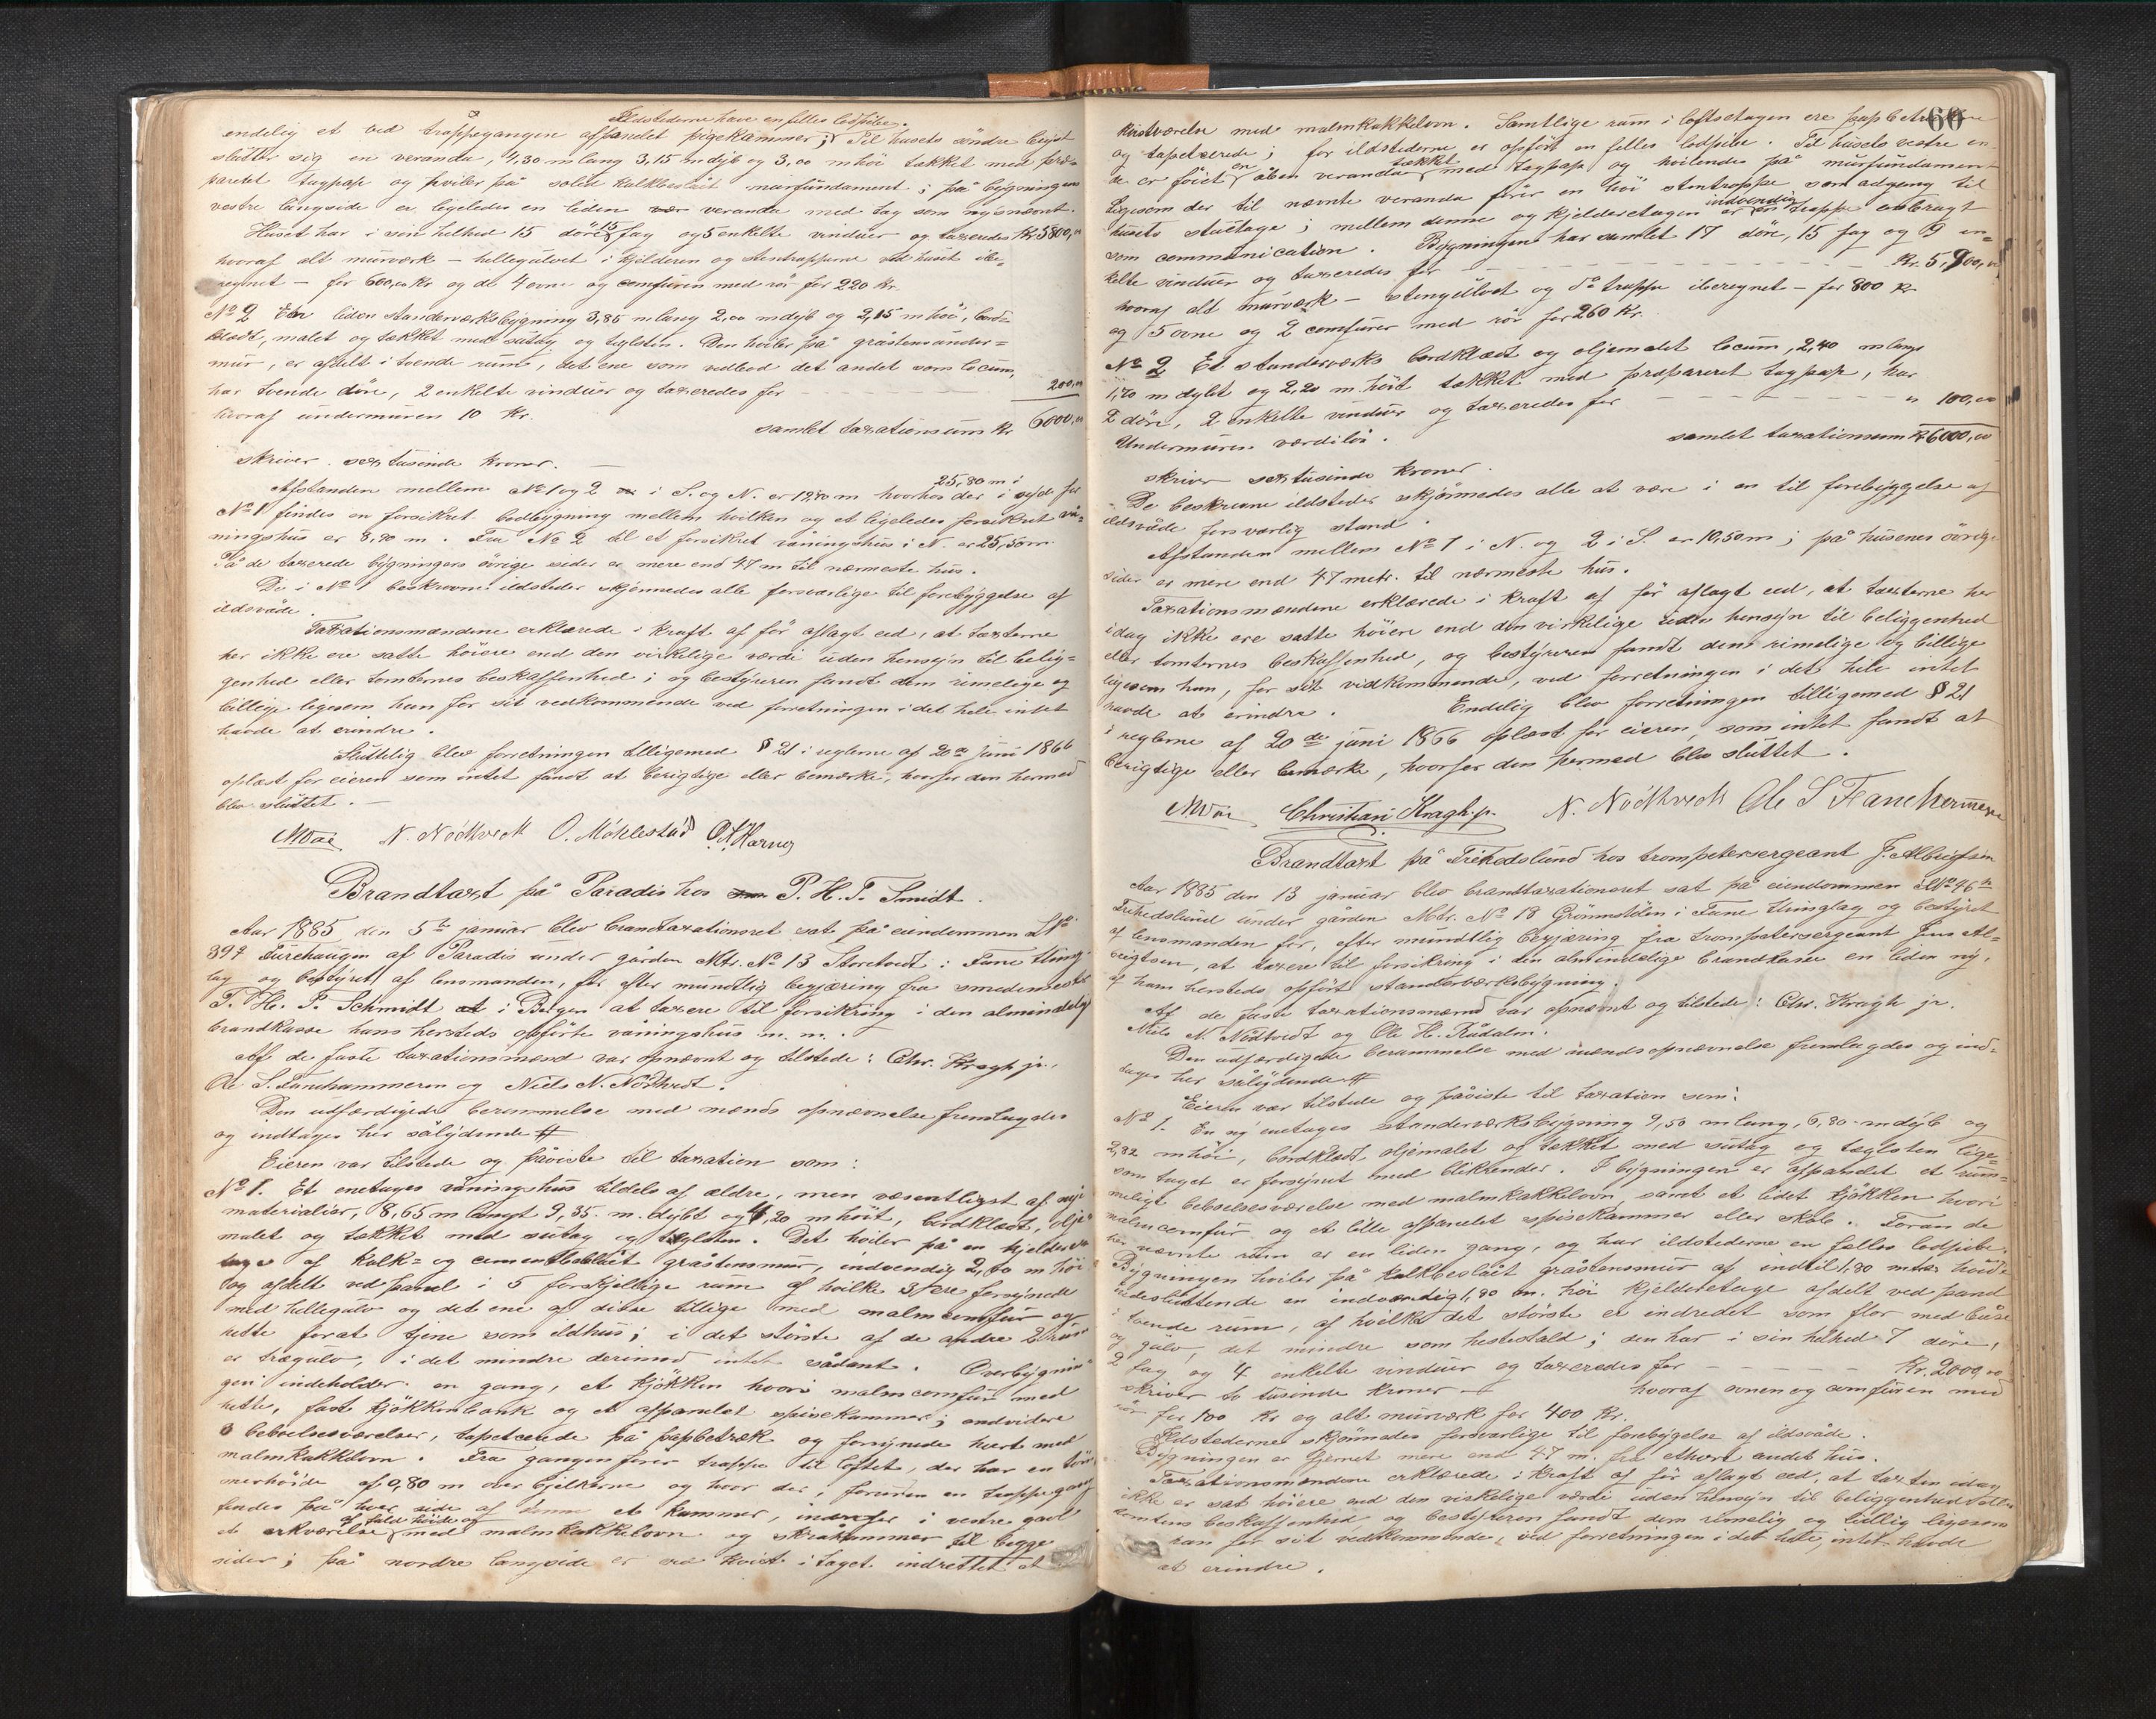 Ildstederne have en felles lodpibe.
endelig et ved trappegangen afpanelet pigekammer; Til husets söndre langs
slutter sig en veranda, 4,30 m lang 3,15 m dyb og 3,00 m höi takket med præ=
pareret tagpap og hviler på solid kalkbeslåt murfundament; på bygningens
vestre langside er ligeledes en liden veranda med tag som nysnævnt.
Huset har i sin helhed 15 döre, 15 fag og 5 enkelte vinduer og taxeredes Kr. 5800,00
hvoraf alt murværk – hellegulvet i kjelderen og stentrapperne ved huset ibe=
regnet – for 600,00 Kr og de 4 ovne og comfuren med rör for 220 Kr.
No 2 En liden standerværksbygning 3,85 m lang 2,00 m dyb og 2,15 m höi, bord=
klædt, malet og tækket med sutag og teglsten. Den hviler på gråstens under=
mur, er afdelt i tvende rum, det ene som vedbod det andet som locum,
har tvende döre, 2 enkelte vinduer og taxeredes for – – – – – 200,00
hvoraf undermuren 10 Kr. samlet taxationssum Kr 6000,00
skriver sex tusinde kroner. –
Afstanden mellem No 1 og 2 i S. og N. er 12,40 m hvorhos der 25,80 m i syd for
No 1 findes en forsikret bodbygning mellem hvilken og et ligeledes forsikret vå=
ningshus er 8,90 m. Fra No 2 til et forsikret våningshus i N. er 25,50 m.
På de taxerede bygningers övrige sider er mere end 47 m til nærmeste hus.
De i No 1 beskrevne ildsteder skjönnedes alle forsvarlige til forebyggelse af
ildsvåde.
Taxationsmændene erklærede i kraft af för aflagt eed, at taxterne
her ikke ere satte höiere end den virkelige værdi uden hensyn til belig=
genhed eller tomternes beskaffenhed; og bestyreren fandt dem rimelige og
billige ligesom han for sit vedkommende ved forretningen i det hele intet
havde at erindre.
Sluttelig blev forretningen tilligemed § 21 i reglerne af 20de juni 1866
oplæst for eieren som intet fandt at berigtige eller bemærke, hvorfor den hermed
blev sluttet. –
N. Nödtvedt O. Möklestad
Brandtaxt på Paradis hos P. H. T. Smidt.
Aar 1885 den 5te januar blev brandtaxationsret sat på eiendommen LNo
39 Furehaugen af Paradis under gården Mtr. No 13 Storetvedt i Fane thing=
lag og bestyret af lensmanden, for efter mundtlig begjæring fra smedemester
P. H. T. Schmidt i Bergen at taxere til forsikring i den almindelige
brandkasse hans hersteds opförte våningshus m. m.
Af de faste taxationsmænd var opnævnt og tilstede: Chr. Kragh jr.,
Ole S. Fanehammeren og Niels N. Nödtvedt.
Den udfærdigede berammelse med mænds opnævnelse fremlagdes
og indtages her sålydende #
Eieren var tilstede og påviste til taxation som:
No 1. Et enetages våningshus tildels af ældre, men væsentligst af nye
materialier, 8,65 m langt 9,35 m. dybt og 4,20 m höit, bordklædt, olje=
malet og tækket med sutag og teglsten. Det hviler på en kjelder=
tage af kalk= og cementbeslåt gråstensmur, indvendig 2,60 m höi
og afdelt ved panel i 5 forskjellige rum af hvilke 3 ere forsynede
med hellegulv og det ene af disse tillige med malmcomfur og
rette forat tjene som ildhus; i det störste af de andre 2 rum
er trægulv, i det mindre derimod intet sådant. Overbygnin=
gen indeholder en gang, et kjökken hvori malmcomfur med
rette, fast kjökkenbænk og et afpanelet spisekammer; endvidere
3 beboelsesværelser, tapetcerede på papbetræk og forsynede hvert med
malmkakkelovn. Fra gangen förer trappe til loftet, der har en töm=
merhöide af 0,80 m over bjelkerne og hvor der, foruden en trappegang
findes på hver side af denne et kammer, indenfor i vestre gavl
et arkværelse af fuld höide og med malmkakkelovn og skråkammer til begge
sider; på nordre langside er ved kvist i taget indrettet et
60
kvistværelse med malmkakkelovn. Samtlige rum i loftsetagen ere papbetrukne
og tapetcerede; for ildstederne er opfört en felles lodpibe. Til husets vestre en=
de er föiet en åben veranda tækket med tagpap og hvilendes på murfundament
ligesom der til nævnte veranda förer en höi stentrappe som adgang til
husets stuetage; mellem denne og kjelderetagen er en indvendig trappe anbragt
som communication. Bygningen har samlet 17 döre, 15 fag og 9 en=
kelte vinduer og taxeredes for – – – – – Kr. 5,900,00
hvoraf alt murværk – stengulvet og do trappe iberegnet – for 800 Kr
og 5 ovne og 2 comfurer med rör for 260 Kr.
No 2 Et standerværks bordklædt og oljemalet locum, 2,40 m langt
1,70 m dybt og 2,20 m. höit tækket med præpareret tagpap, har
2 döre, 2 enkelte vinduer og taxeredes for – – – – – " 100,00
Undermuren værdilös. samlet taxationssum Kr 6000,00
skriver sextusinde kroner.
De beskrevne ildsteder skjönnedes alle at være i en til forebyggelse af
ildsvåde forsvarlig stand.
Afstanden mellem No 1 i N. og 2 i S. er 10,50 m; på husenes övrige
sider er mere end 47 metr. til nærmeste hus.
Taxationsmændene erklærede i kraft af för aflagt eed, at taxterne her
idag ikke ere satte höiere end den virkelige uden hensyn til beliggenhed
eller tomternes beskaffenhed, og bestyreren fandt dem rimelige og billige
ligesom han, for sit vidkommende, ved forretningen i det hele intet
havde at erindre. Endelig blev forretningen tilligemed § 21
i reglerne af 20de juni 1866 oplæst for eieren, som intet fandt at
berigtige eller bemærke, hvorfor den hermed blev sluttet.
Christian Kragh jr. N. Nödtvedt Ole S Fanehammeren
Brandtaxt på Frihedslund hos trompetersergeant J. Albrigtsen
Aar 1885 den 13 januar blev brandtaxationsret sat på eiendommen LNo 46
Frihedslund under gården Mtr. No 18 Grönnestölen i Fane thinglag og bestyret
af lensmanden for, efter mundtlig begjæring fra trompetersergeant Jens Al=
brigtsen, at taxere til forsikring i den almindelige brandkasse en liden ny,
af ham hersteds opfört standerværksbygning.
Af de faste taxationsmænd var opnævnt og tilstede: Chr. Kragh jr.
Niels N. Nödtvedt og Ole H. Rådalen.
Den udfærdigede berammelse med mændsopnævnelse fremlagdes og ind=
tages her sålydende #
Eieren var tilstede og påviste til taxation som:
No 1. En ny enetages standerværksbygning 9,50 m lang, 6,80 m dyb og
2,82 m höi, bordklædt, oljemalet og tækket med sutag og teglsten lige=
som taget er forsynet med blikrender. I bygningen er afpanelet et rum=
meligt beboelsesværelse med malmkakkelovn, samt et lidet kjökken hvori
malmcomfur og et lille afpanelet spisekammer eller skab. Foran de
her nævnte rum er en liden gang, og har ildstederne en felles lodpibe.
Bygningen hviler på kalkbeslåt gråstensmur af indtil 1,80 mtrs höide
indesluttende en indvendig 1,90 m. höi kjelderetage afdelt ved panel
i tvende rum, af hvilke det störste er indredet som flor med båse
og gulv, det mindre som hestestald; den har i sin helhed 7 döre,
2 fag og 4 enkelte vinduer og taxeredes for – – – – Kr. 2000,00
skriver to tusinde kroner – hvoraf ovnen og comfuren med
rör for 100 Kr og alt murværk for 400 Kr.
Ildstederne skjönnedes forsvarlige til forebygelse af ildsvåde.
Bygningen er fjernet mere end 47 m. fra ethvert andet hus.
Taxationsmændene erklærede i kraft af för aflagt eed, at taxten idag
ikke er sat höiere end den virkelige værdi uden hensyn til beliggenhed eller
tomtens beskaffenhed og bestyreren fandt dem rimelig og billig ligesom
han for sit vedkommende, ved forretningen i det hele, intet havde
at erindre.